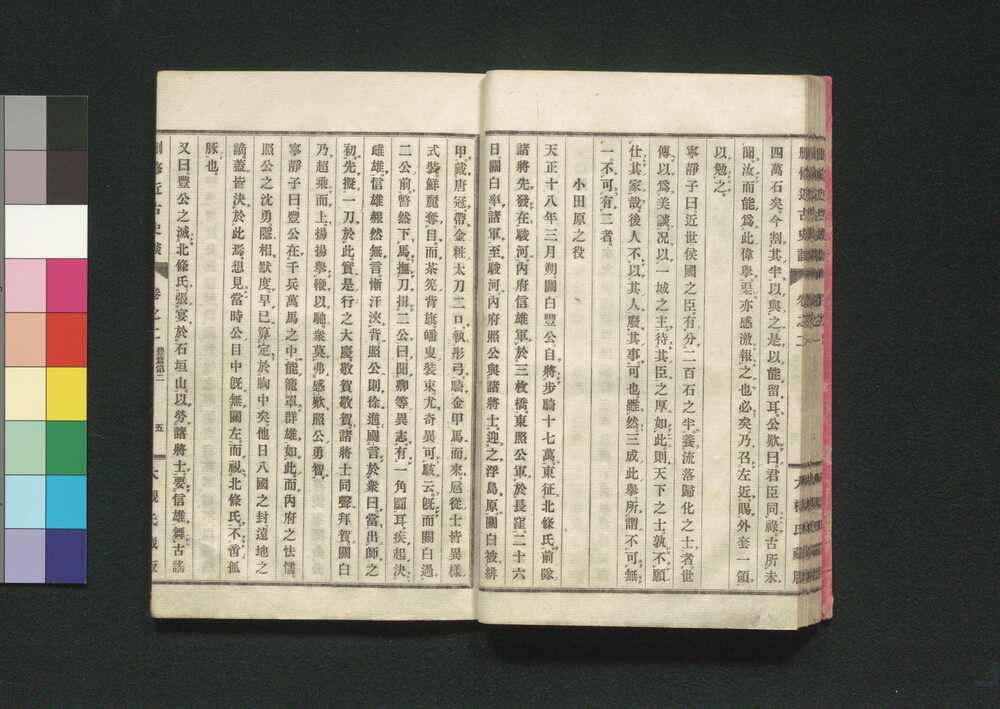 四萬石矣今割其半以與之是以能留耳公歎曰君臣同祿古所未
聞汝而能爲此偉擧渠亦感激報之也必矣乃召左近賜外套一領
以勉之
寧靜子曰近世侯國之臣有分二百石之半養流落歸化之士者世
傳以爲美談况以一城之主待其臣之厚如此則天下之士孰不願
仕其家哉後人不以其人廢其事可也雖然三成此擧所謂不可無
一不可有二者
小田原之役
天正十八年三月朔關白豐公自將步騎十七萬東征北條氏前隊
諸將先發在駿河內府信雄軍於三枚橋東照公軍於長窪二十六
日關白率諸軍至駿河內府照公與諸將士迎之浮島原關白被緋
甲戴唐冠帶金粧太刀二口執彤弓騎金甲馬而來扈從士皆異樣
式裝鮮麗奪目而茶筅背旗皤叟裝束尤奇異可駭云旣而關白過
二公前瞥然下馬撫刀揖二公曰聞卿等異志有一角鬪耳疾起決
雌雄信雄赧然無言慚汗浹背照公則徐進颺言於衆曰當出師之
初先擬一刀於此實是行之大慶敬賀敬賀諸將士同聲拜賀關白
乃超乘而上揚揚擧鞭以馳衆莫弗感歎照公勇智
寧靜子曰豐公在千兵萬馬之中能籠罩群雄如此而內府之怯懦
照公之沈勇隱相默度早已算定於胸中矣他日八國之封遠地之
謫蓋皆決於此焉想見當時公目中旣無關左而視北條氏不啻孤
豚也
又曰豐公之滅北條氏張宴於石垣山以勞諸將士要信雄舞古謠
修近古史談 卷之二 豐篇第二 五 大槻氏藏版